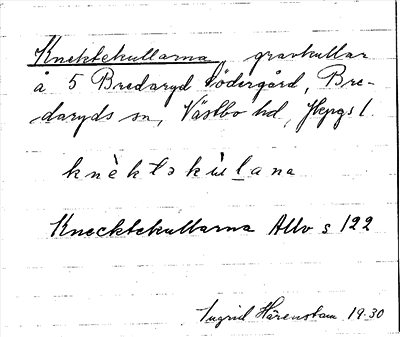 Knektekullarna, gravkullar
å 5 Bredaryd Södergård, Bre-
daryds sn, Västbo hd, Jkpgs l.
knèktəkùlana
Knecktekullarna Allv s 122
Ingrid Härenstam 19.30